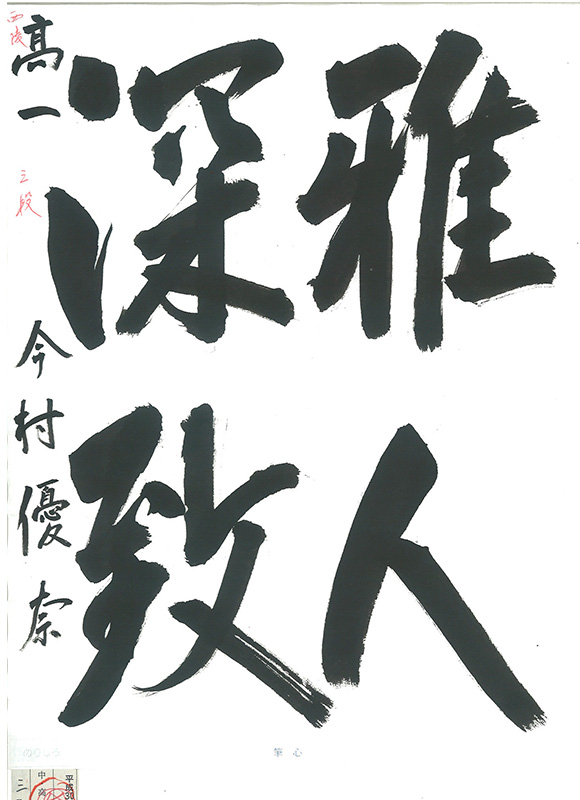 雅人
深致
西陵
高一 三段 今村優奈
筆心
平成30
中
三